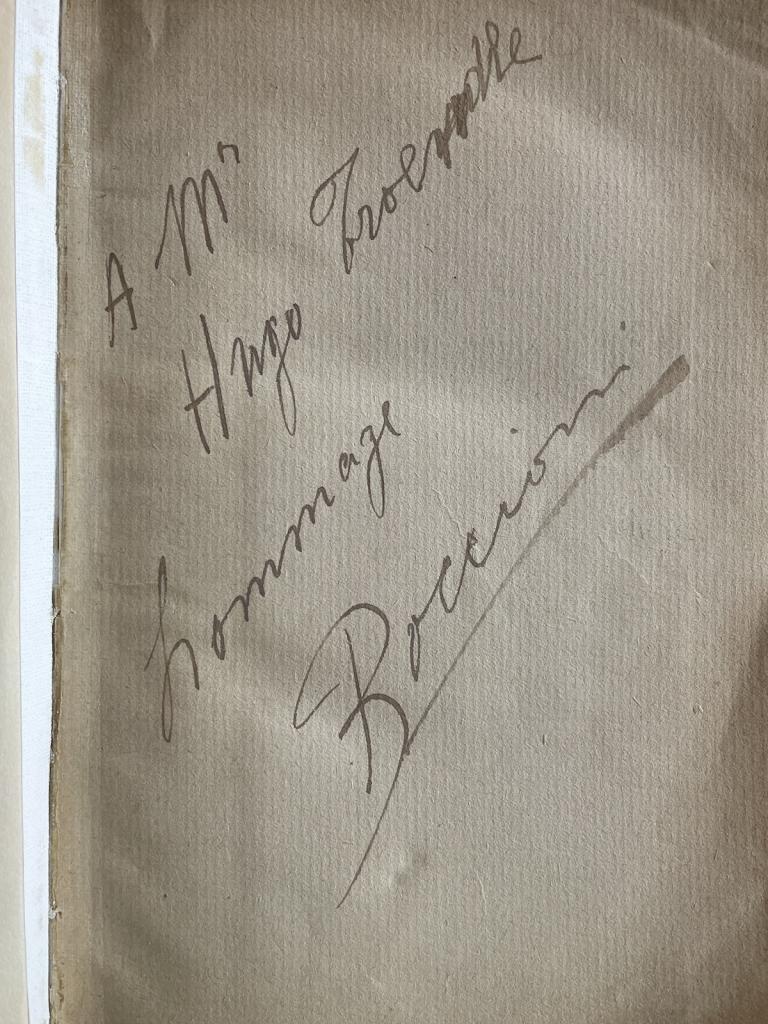 A Mr
Hugo
hommage
Boccioni